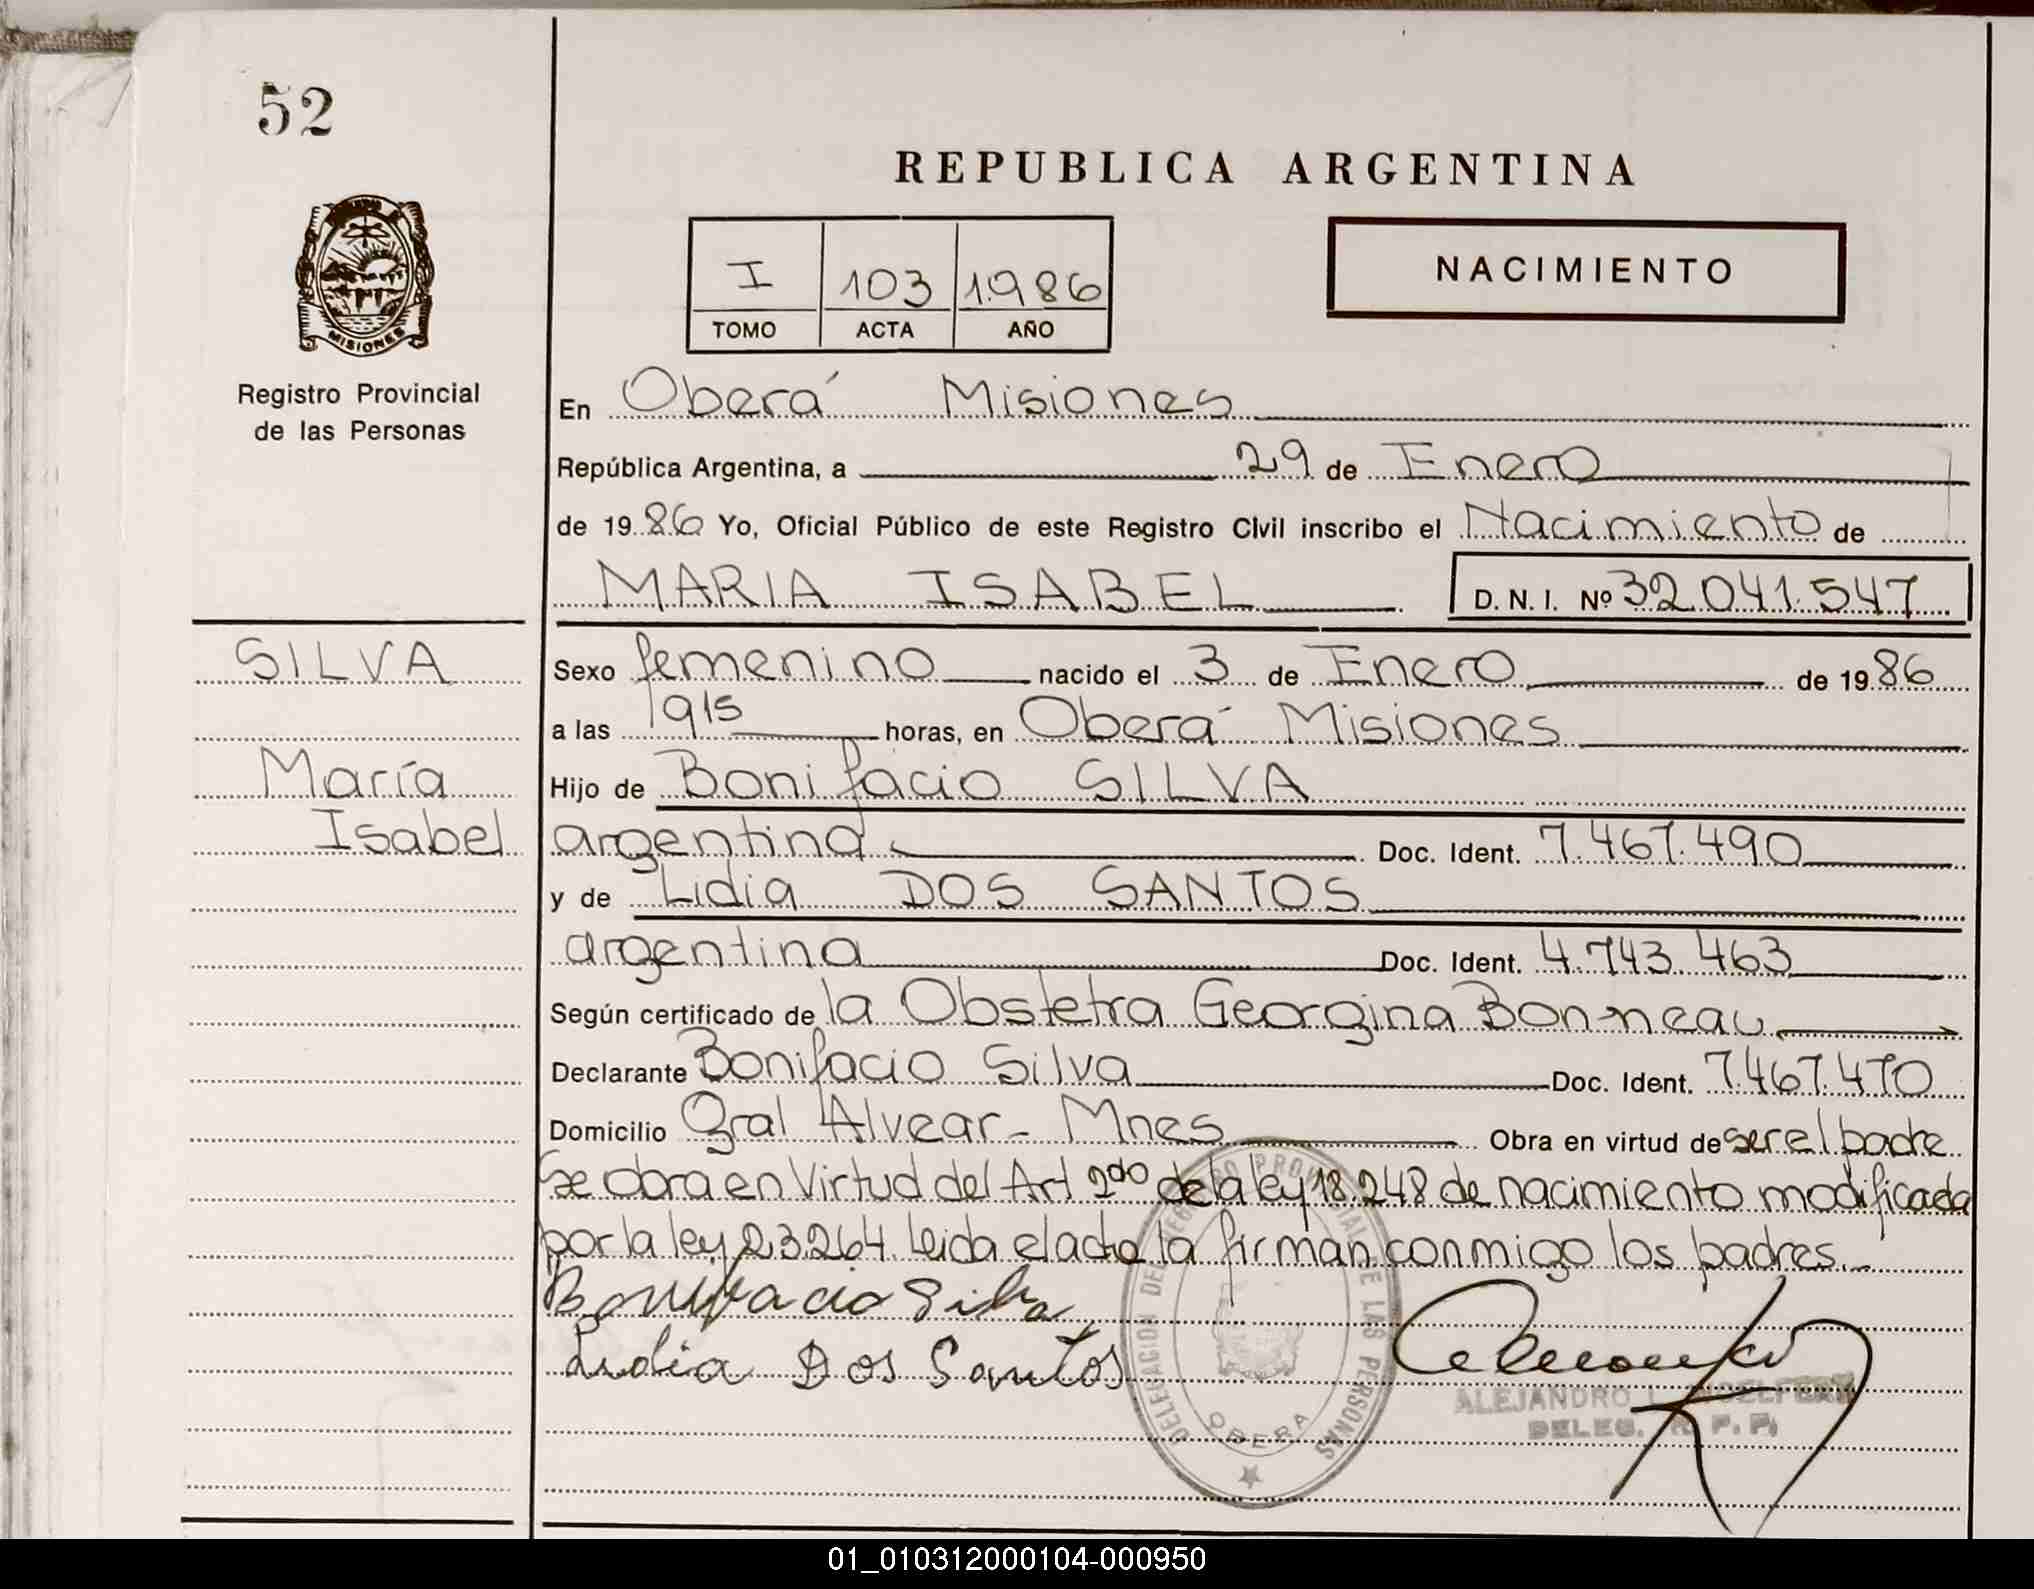 52
REPUBLICA ARGENTINA
I 103 1.986
TOMO ACTA AÑO
NACIMIENTO
MISIONES
Registro Provincial
de las Personas
En Oberá Misiones
República Argentina, a 29 de Enero
de 19 86 Yo, Oficial Público de este Registro Civil inscribo el Nacimiento de
MARIA ISABEL D. N. I. Nº 32.041.547
SILVA
María
Isabel
Sexo femenino nacido el 3 de Enero de 19 86
a las 1915 horas, en Oberá Misiones
Hijo de Bonifacio SILVA
argentina Doc. Ident. 7.467.490
y de Lidia DOS SANTOS
argentina Doc. Ident. 4.743.463
Según certificado de la Obstetra Georgina Bonneau
Declarante Bonifacio Silva Doc. Ident. 7.467.470
Domicilio Gral Alvear - Mnes Obra en virtud de ser el padre
Se obra en Virtud del Art 2do de la ley 18.248 de nacimiento modificada
por la ley 23.264. Leida el acta la firman conmigo los padres.
Bonifacio Silva
Lidia Dos Santos
DELEGACION DEL REGISTRO PROVINCIAL DE LAS PERSONAS
OBERA
ALEJANDRO
DELEG. R. P. P.
01_010312000104-000950